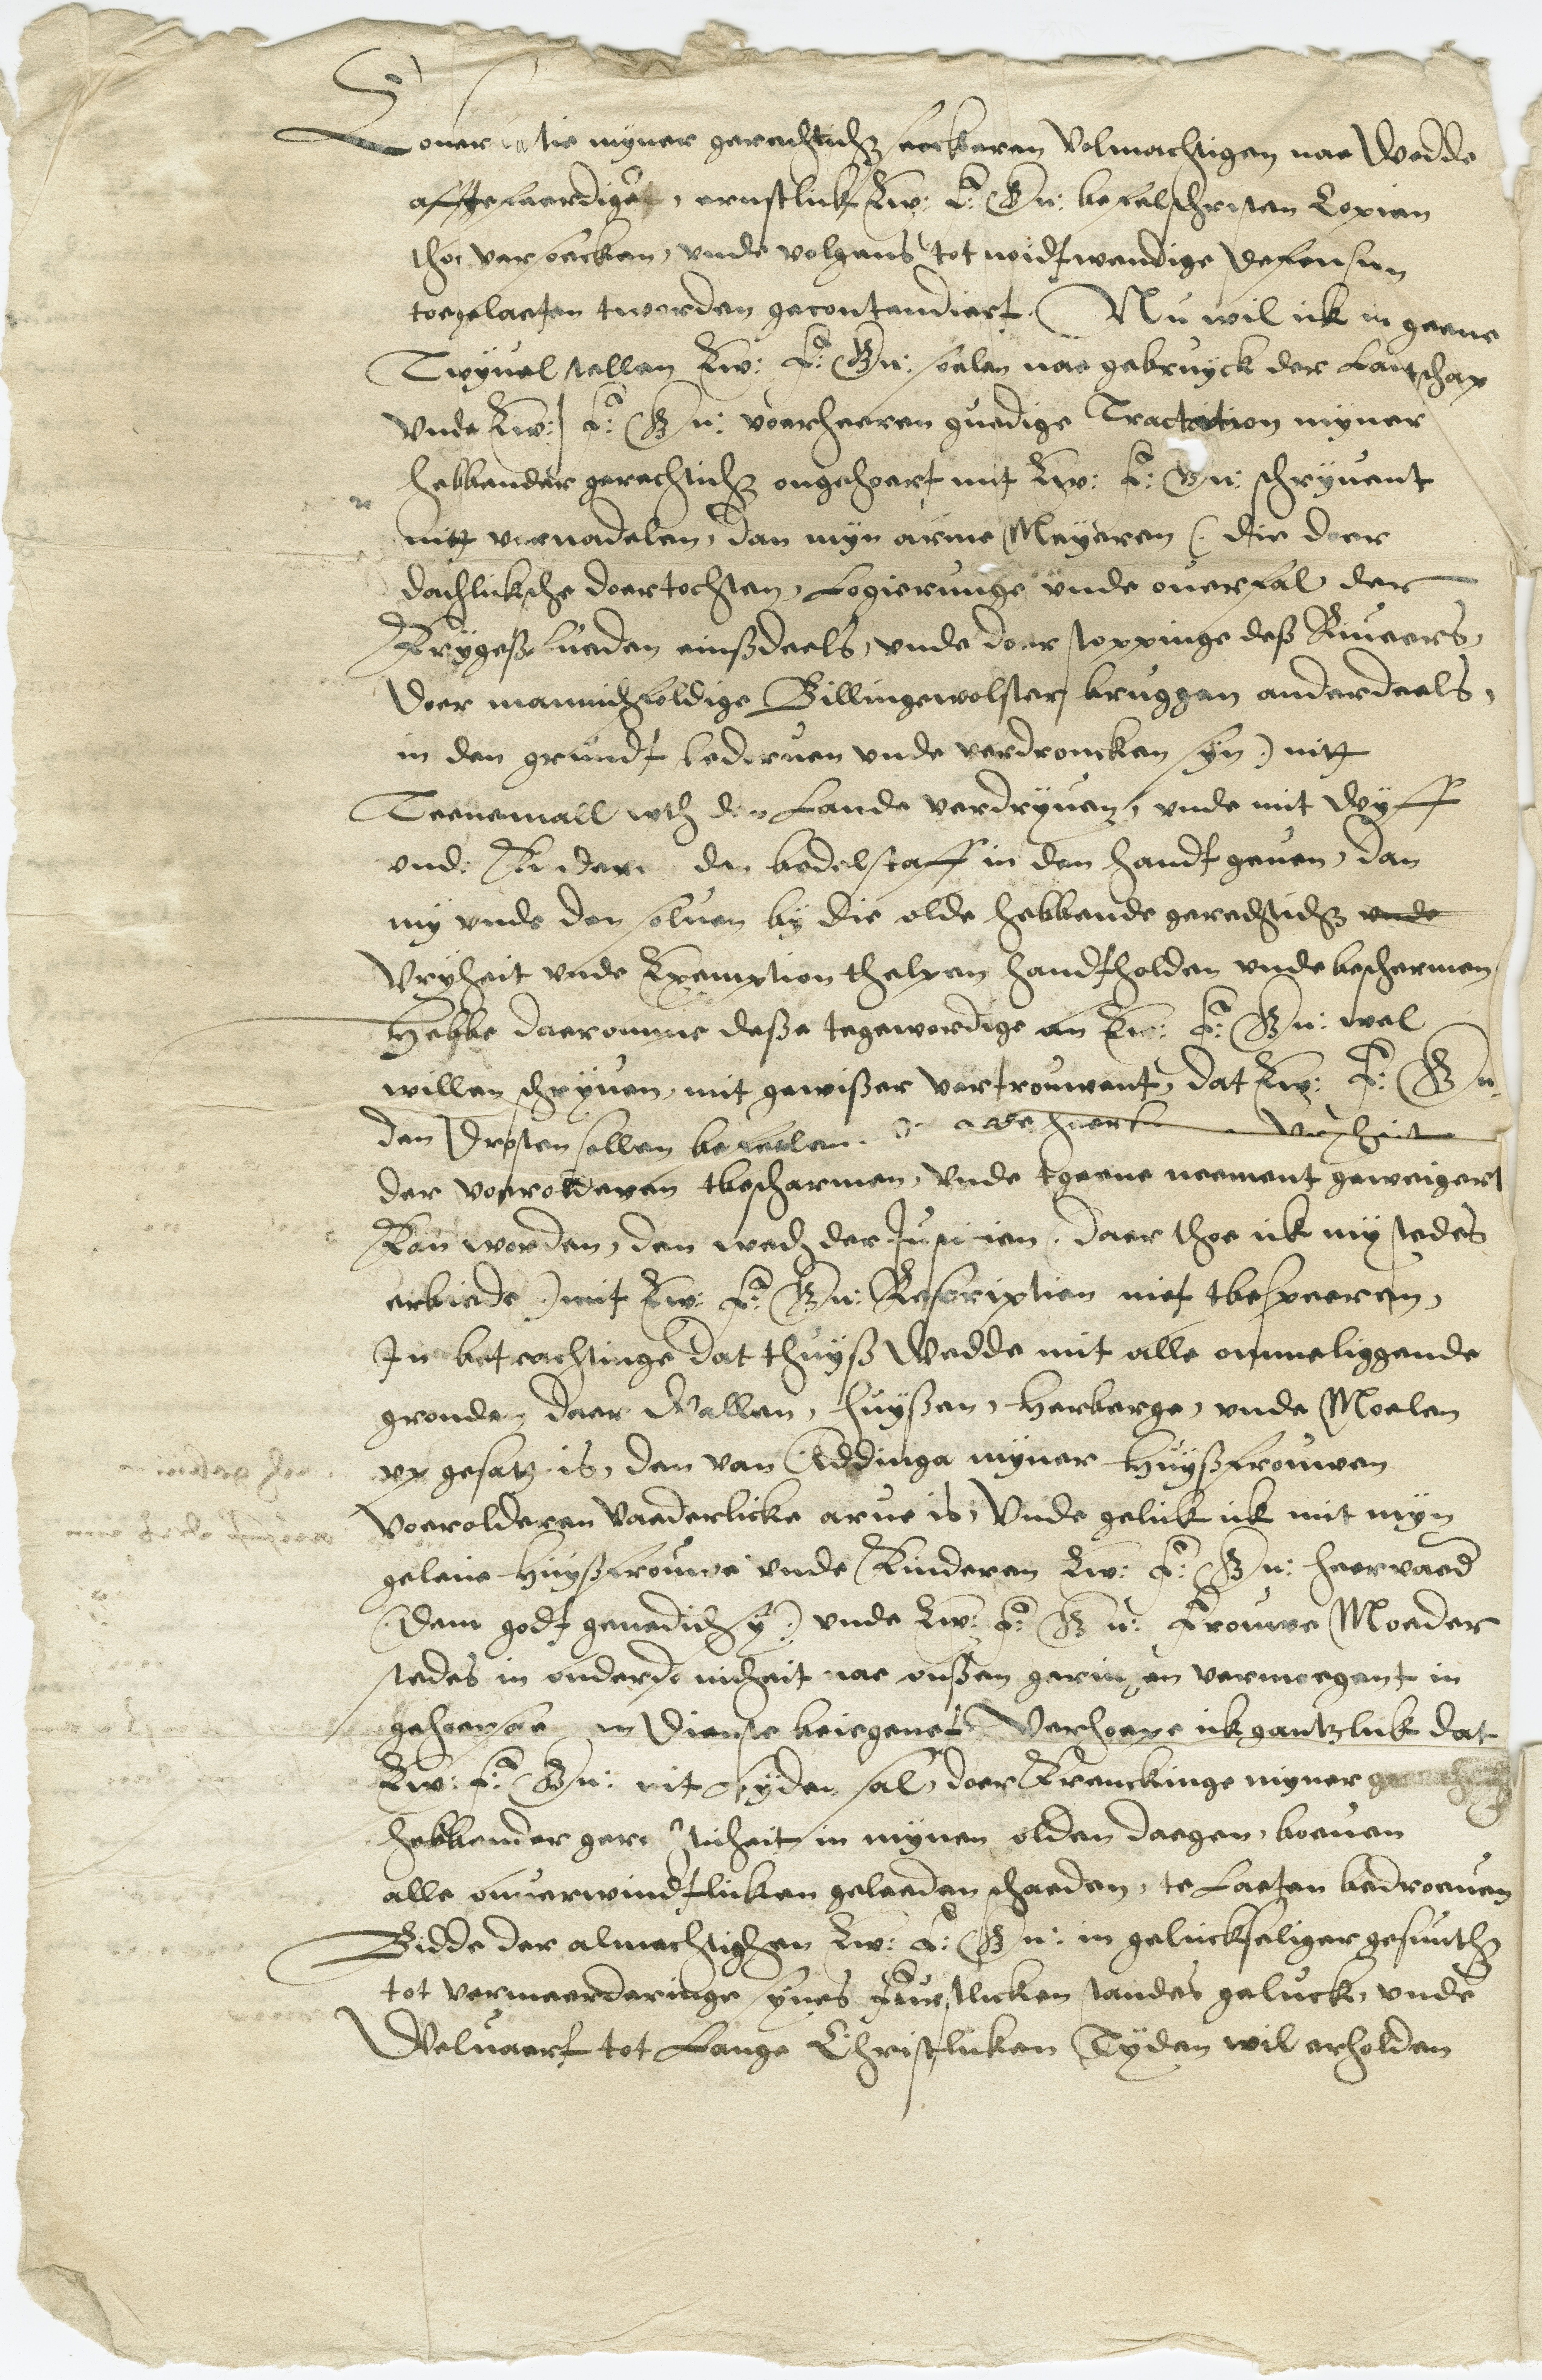 Conseruatie myner gerechtich. seeckeren Volmachtigen nae Wedde
affgefeerdiget, ernstlick Ew: F: Gn: befelschriften Copien
tho versoecken, vnde volgens tot noidtwendige Defensien
toegelaeten tworden gecontendiert. Nu wil ick in geene
Twyuel stellen Ew: F: Gn: solen nae gebruyck der Lantschap
vnde Ew: F: Gn: voerheeren gnedige Tractation myner
hebbender gerechtich. ongehoert mit Ew: F: Gn: schryuent
nitt vernadelen, dan myn arme Meyeren (: die doer
dachlicksche doertochten, Logierunge vnde ouerfal der
Krygeßlueden einßdeels, vnde doer stoppinge deß Riuiers,
Doer mannichfoldige Billingewolster bruggen anderdeels,
in den grundt bedoruen vnde verdroncken syn:) nitt
Teenemall wth den Lande verdryuen, vnde mit Wyff
vnde Kinderen den bedelstaff in den handt geuen, dan
my vnde den seluen by die olde hebbende gerechtich. vnde
Vryheit vnde Exemption thelpen handtholden vnde beschermen
Hebbe daeromme deße tegewordige an Ew: F: Gn: wel
willen schryuen, mit gewißer vertrouwent, dat Ew: F: Gn:
den Drosten sollen befeelen. olde Vryheit
der voerolderen tbeschermen, vnde tgeene neement geweigert
Kan worden, den wech der Justicien (: daer thoe ick my stedes
erbiede :) mit Ew: F: Gn: Rescription niet tbesperen,
In betrachtinge dat thuyß Wedde mit alle ommeliggende
gronden daer Wallen, huyßen, Herberge, vnde Moelen
vp gesatz is, den van Addinga myner Huyßfrouwen
Voerolderen Vaederlicke arue is, Vnde gelick ick mit myn
gelieue Huyßfrouwe vnde Kinderen Ew: F: Gn: heervaed
(: Dem godt genedich sy :) vnde Ew: F: Gn: Frouwe Moeder
stedes in onderdenicheit nae onßen geringen vermoegent in
gehoersame Dienste beiegenet. Verhoepe ick gantzlick dat
Ew: F: Gn: nit lyden sal, doer Krenckinge myner
hebbender gerechticheit in mynen olden daegen, boeuen
alle onuerwindtlicken geleeden schaeden, te Laeten bedroeuen
Bidde der almachtighen Ew: F: Gn: in geluckseliger gesunth.
tot vermeerderinge synes Furstlicken standes geluck, vnde
Weluaert tot Lange Christlicken Tyden wil erholden